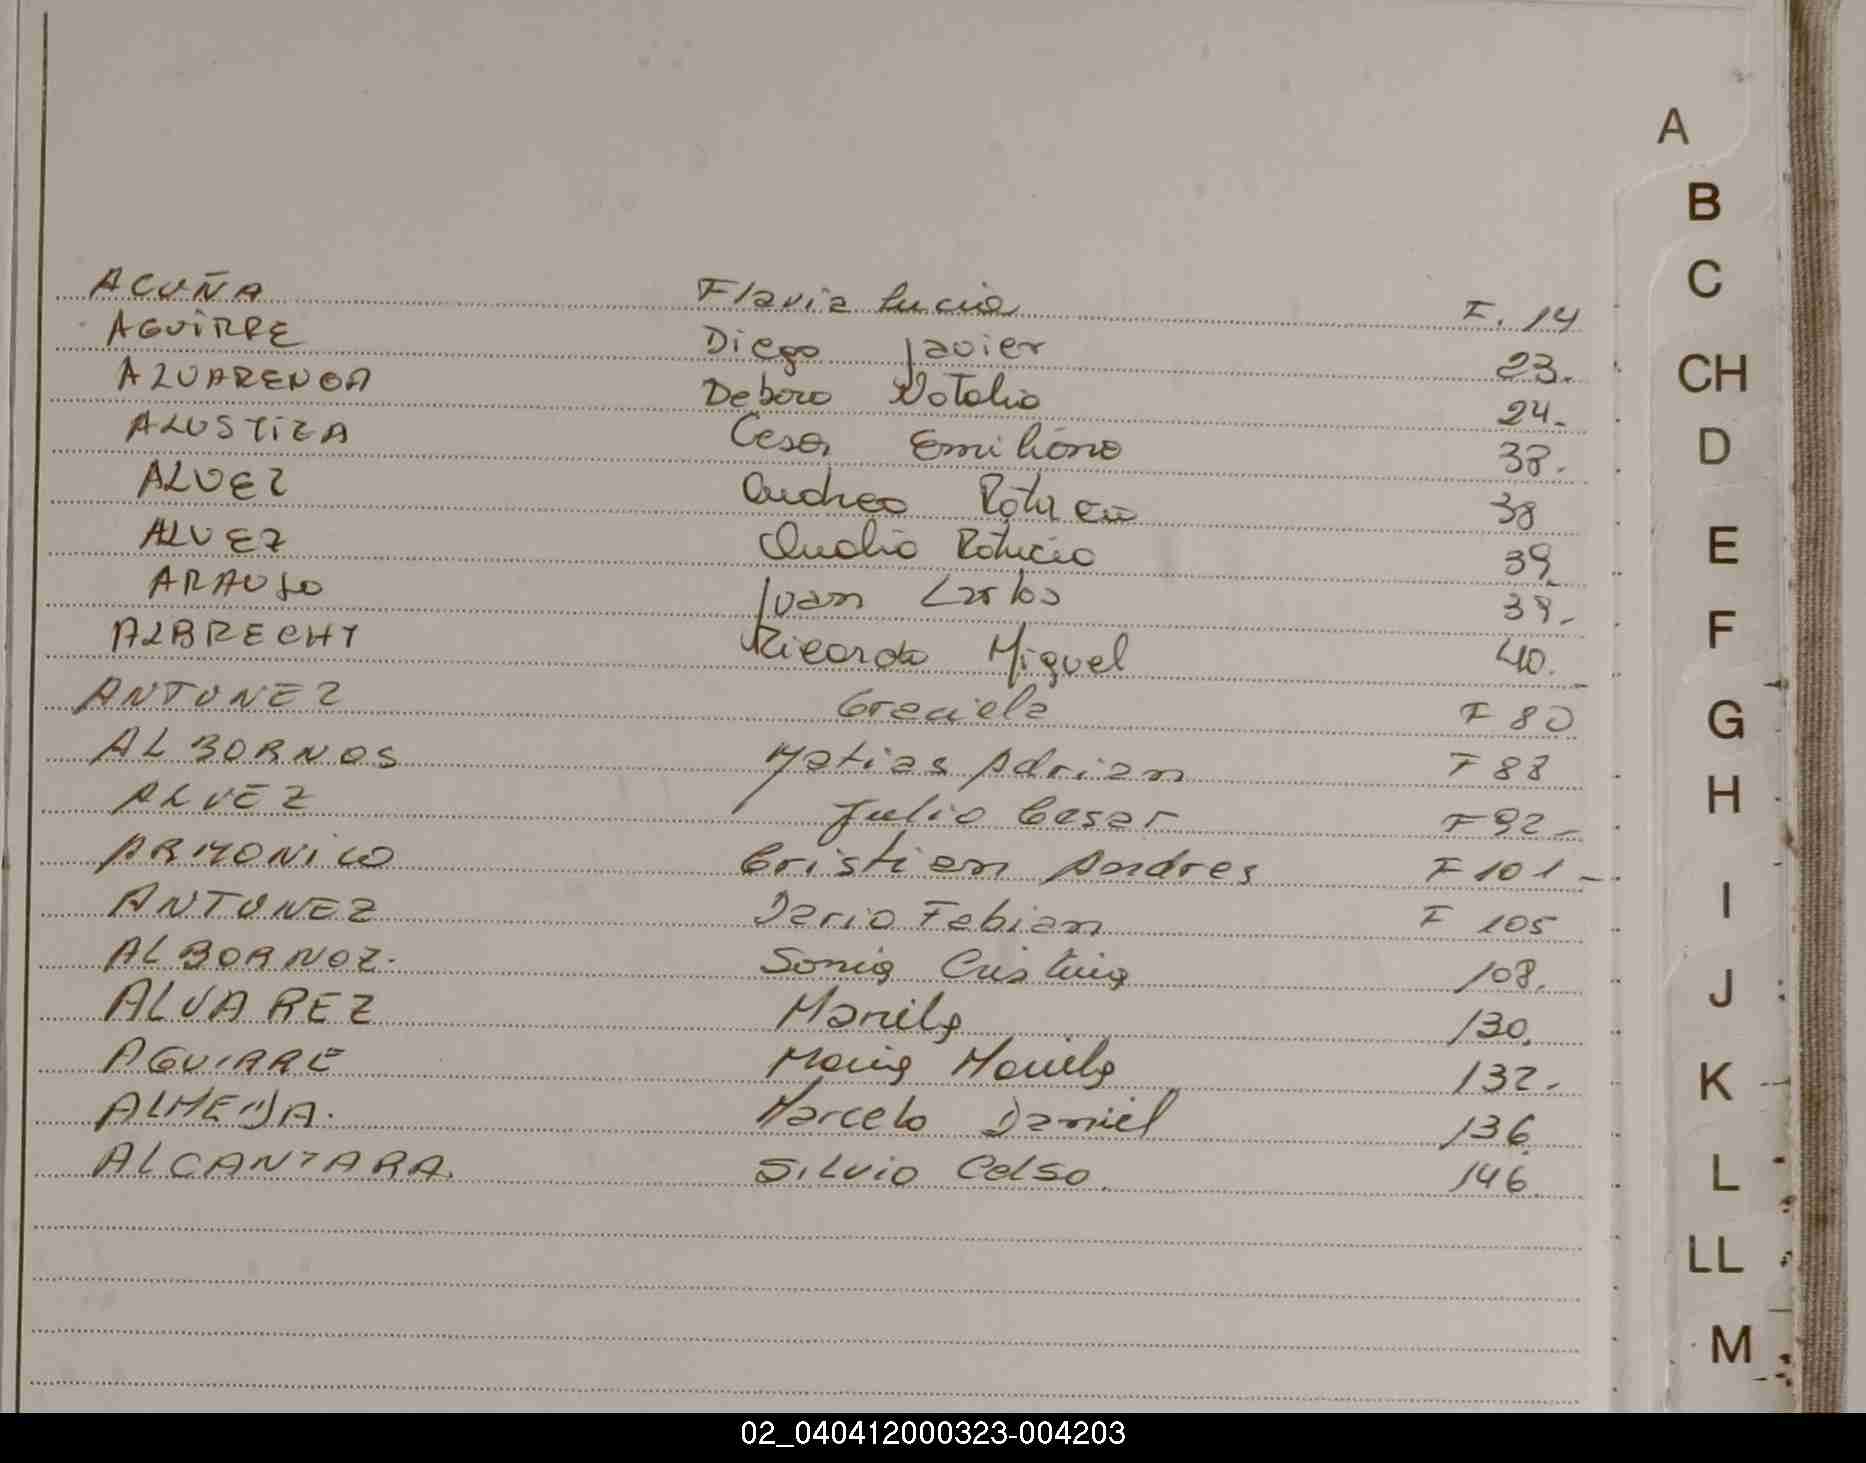 A
B
C
CH
D
E
F
G
H
I
J
K
L
LL
M
ACUÑA Flavia Lucia F. 14
AGUIRRE Diego Javier 23.
ALVARENGA Debora Natalia 24.
ALUSTIZA Cesar Emiliano 38.
ALVEZ Andrea Patricia 38
ALVEZ Analia Patricia 39
ARAUJO Juan Carlos 39.
ALBRECHT Ricardo Miguel 40.
ANTUNEZ Graciela F 80
ALBORNOS Matias Adrian F 88
ALVEZ Julio Cesar F 92-
ARMONICO Cristian Andres F 101-
ANTUNEZ Dario Fabian F 105
ALBORNOZ. Sonia Cristina 108.
ALVAREZ Mariela 130.
AGUIRRE Maria Mariela 132.
ALMEIDA. Marcelo Daniel 136.
ALCANTARA. Silvio Celso. 146.
02_040412000323-004203